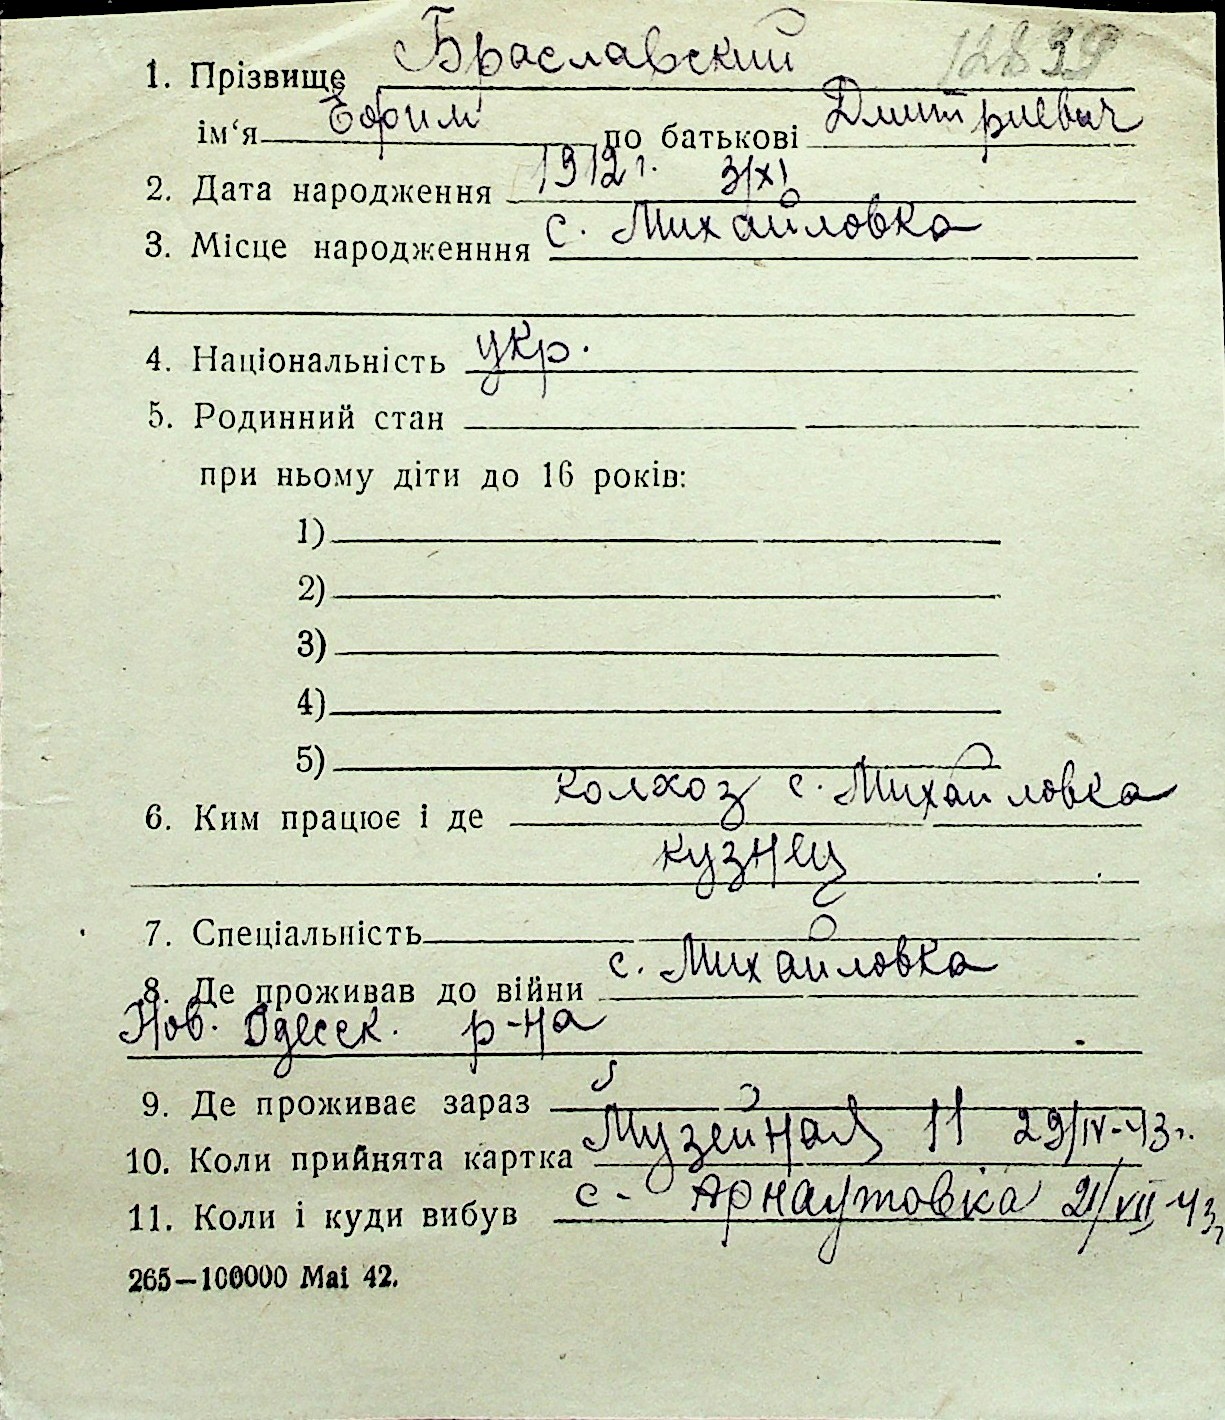 12839
1. Прізвище Браславский
ім‘я Ефим по батькові Дмитриевич
2. Дата народження 1912 г. 3/XI
3. Місце народженння с. Михайловка
4. Національність укр.
5. Родинний стан
при ньому діти до 16 років:
1)
2)
3)
4)
5)
6. Ким працює і де колхоз с. Михайловка
кузнец
7. Спеціальність
8. Де проживав до війни с. Михайловка
Нов. Одесск. р-на
9. Де проживає зараз
10. Коли прийнята картка Музейная 11 29/IV-43г.
11. Коли і куди вибув с. Арнаутовка 21/VII-43г.
265—100000 Mai 42.